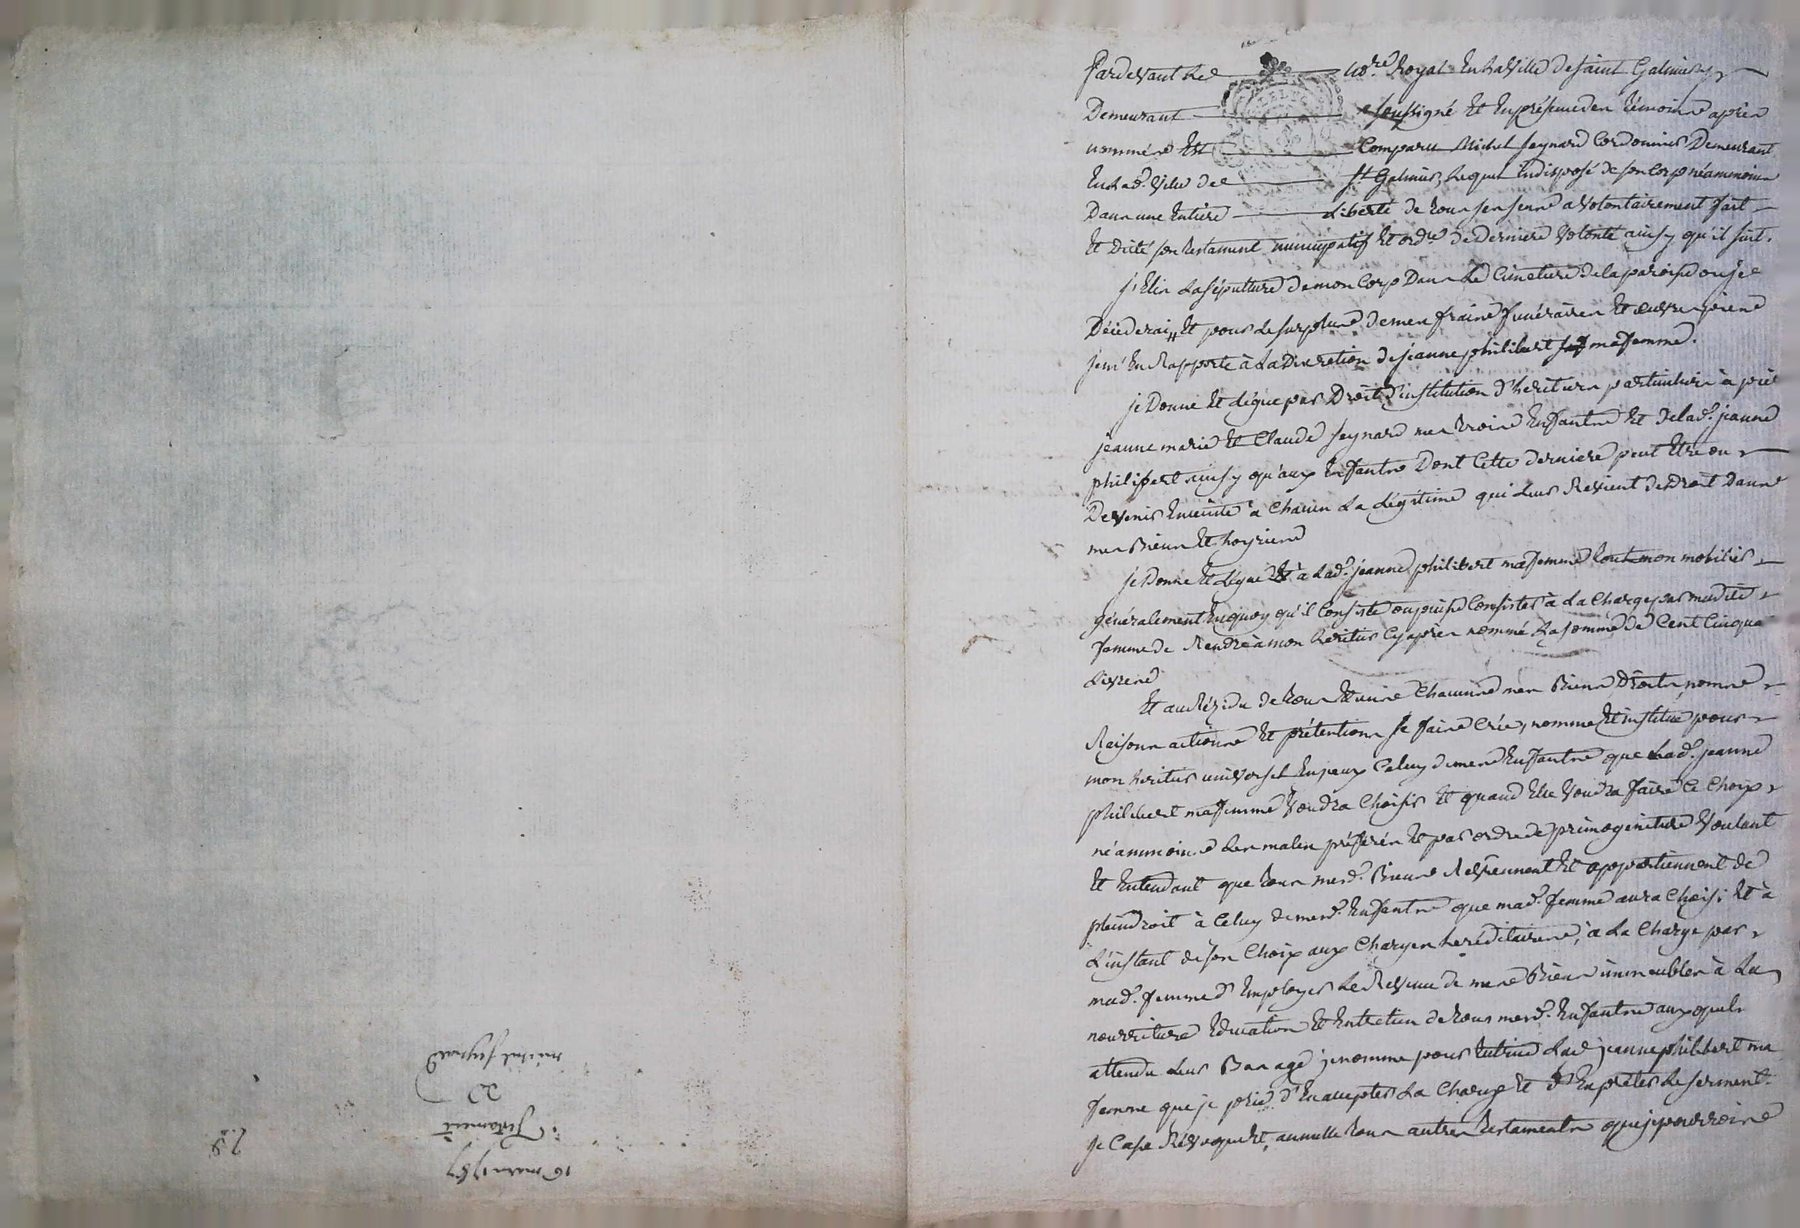 Pardevant Le no.re Royal En La Ville de saint Galmier,
Demeurant soussigné Et En présence des témoins après
nommés Est Comparu Michel seynard Cordonnier Demeurant
En Lad. Ville de st Galmier, Lequel Indisposé de son Corp néammoins
Dans une Entiere Liberté de tous ses sens a volontairement fait
Et Dicté son testament nuncupatif Et ord.re de derniere volonté ainsy qu'il suit.
j'Elis La sépulture de mon Corp Dans Le Cimetiere de la paroisse ou je
Déciderai Et pour Le surplus de mes frais funéraires Et œuvres pies
je m'En Rapporte à La Discretion de jeanne philibert ma femme.
je Donne Et Lègue par Droit d'institution d'heritiers particuliers à
jeanne marie Et Claude seynard mes trois Enfants Et de lad. jeanne
philibert ainsy qu'aux Enfants Dont Cette derniere peut Etre ou
Devenir Enceinte à Chacun La Légitime qui Leur Revient de Droit Dans
mes Biens Et hoyries
je Donne Et Lègue à Lad. jeanne philibert ma femme tout mon mobilier
généralement En quoy qu'il Consiste ou puisse Consister à La Charge par madite
femme de Rendre à mon heritier Cy après nommé La somme de Cent Cinquante
Livres
Et au Résidu de tous Et uns Chacuns mes Biens Droits noms
Raisons actions Et prétentions je fais Crée, nomme Et institue pour
mon heritier universel En jceux Celuy de mes Enfants que Lad. jeanne
philibert ma femme voudra Choisir Et quand Elle voudra faire Ce Choix
néammoins Les males préférés Et par ordre de primogeniture voulant
Et Entendant que tous mesd. Biens Reviennent Et appartiennent de
plein droit à Celuy de mesd. Enfants que mad. femme aura Choisi Et à
L'instant de son Choix aux Charges heréditaires, à La Charge par
mad. femme d'Employer Le Revenu de mes Biens immeubles à La
nourriture Education Et Entretien de tous mesd. Enfants auxquels
attendu Leur Bas age je nomme pour tutrice Lad. jeanne philibert ma
femme que je prie d'En accepter La Charge Et d'En prêter Le serment.
je Casse Révoque Et annulle tous autres testaments que je pourrois
16 mars 1787
Testament
michel seynard